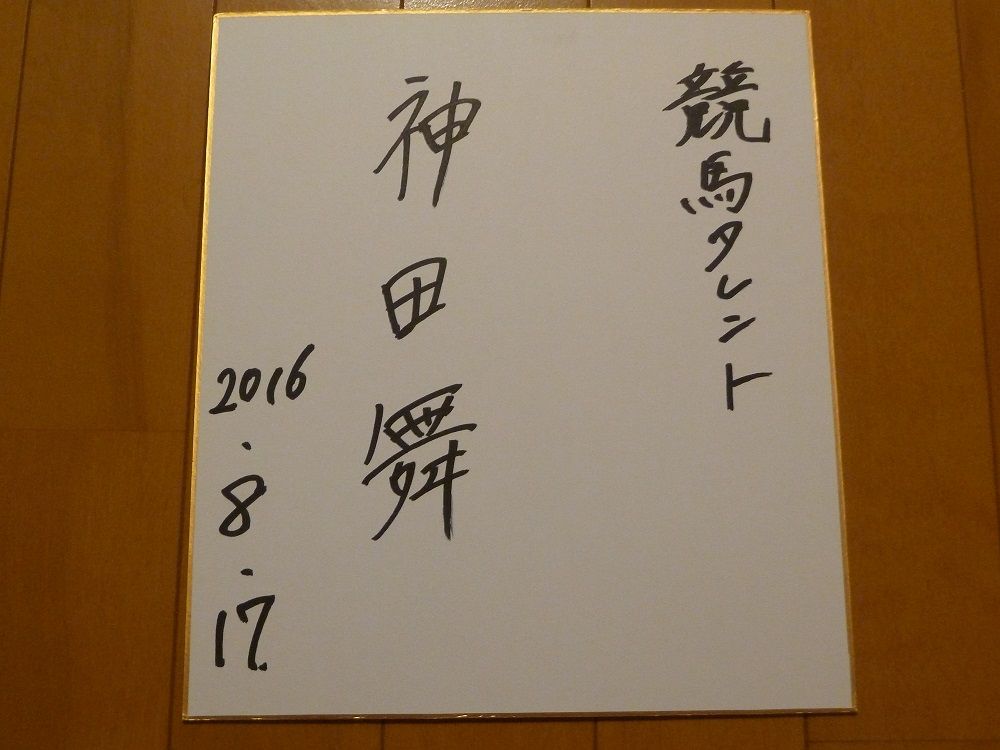 競馬タレント
神田舞
2016.8.17